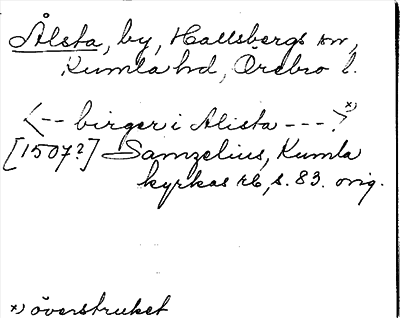 Ålsta, by, Hallsbergs sn,
Kumla hd, Örebro l.
<-- birger i Alista --->. x)
[1507?] Samzelius, Kumla
kyrkas rb, s. 83. orig.
x) överstruket